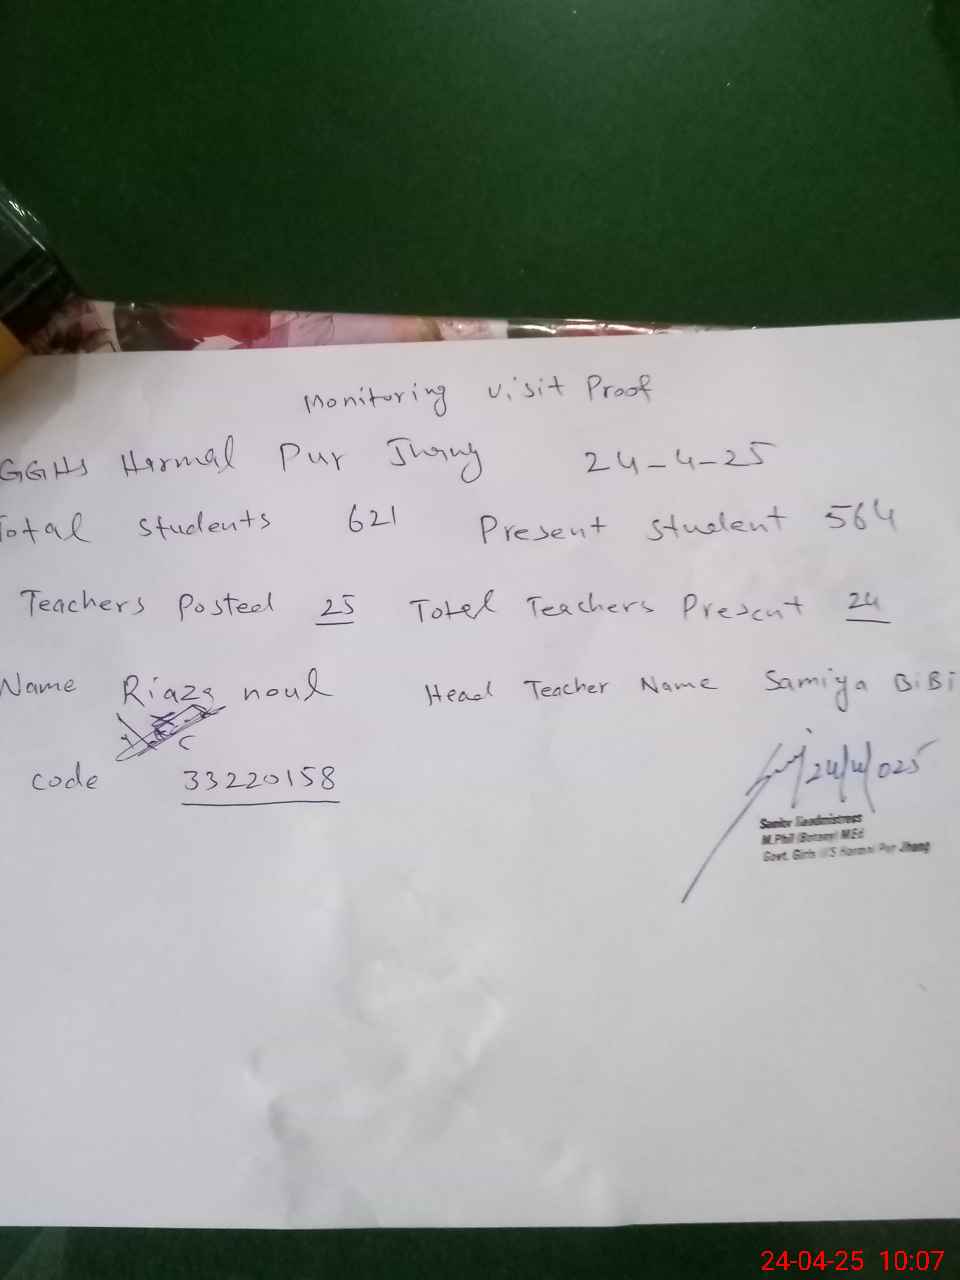 Monitoring visit Proof
GGHS Harmal Pur Jhang 24-4-25
Total students 621 Present student 564
Teachers posted 25 Total Teachers Present 24
Name Riaz noul Head Teacher Name Samiya BiBi
code 33220158
24/4/025
Senior Headmistress
M.Phil (Botany) M.Ed
Govt. Girls H/S Harmal Pur Jhang
24-04-25 10:07